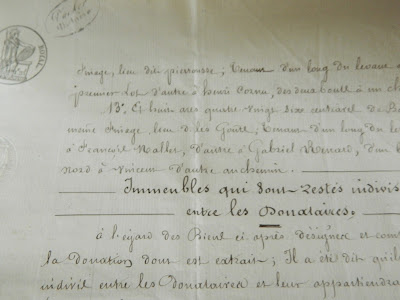 finage, lieu dit pierrousse ; Tenant d'un long du levant a
premier lot d'autre à henri Cornu, des deux bouts à un ch
13° Et huit ares quatre vingt six centiares de
même finage, lieu dit les Gouttes, Tenant d'un long du le
à François Mallet, d'autre à Gabriel Renard, d'un b
Nord à Vincent d'autre au chemin.
Immeubles qui sont restés indivis
entre les Donataires.
à l'égard des Biens ci après désignés et com
la Donation dont est extrait ; Il a été dit qu'il
indivis entre les Donataires et leur appartiendra